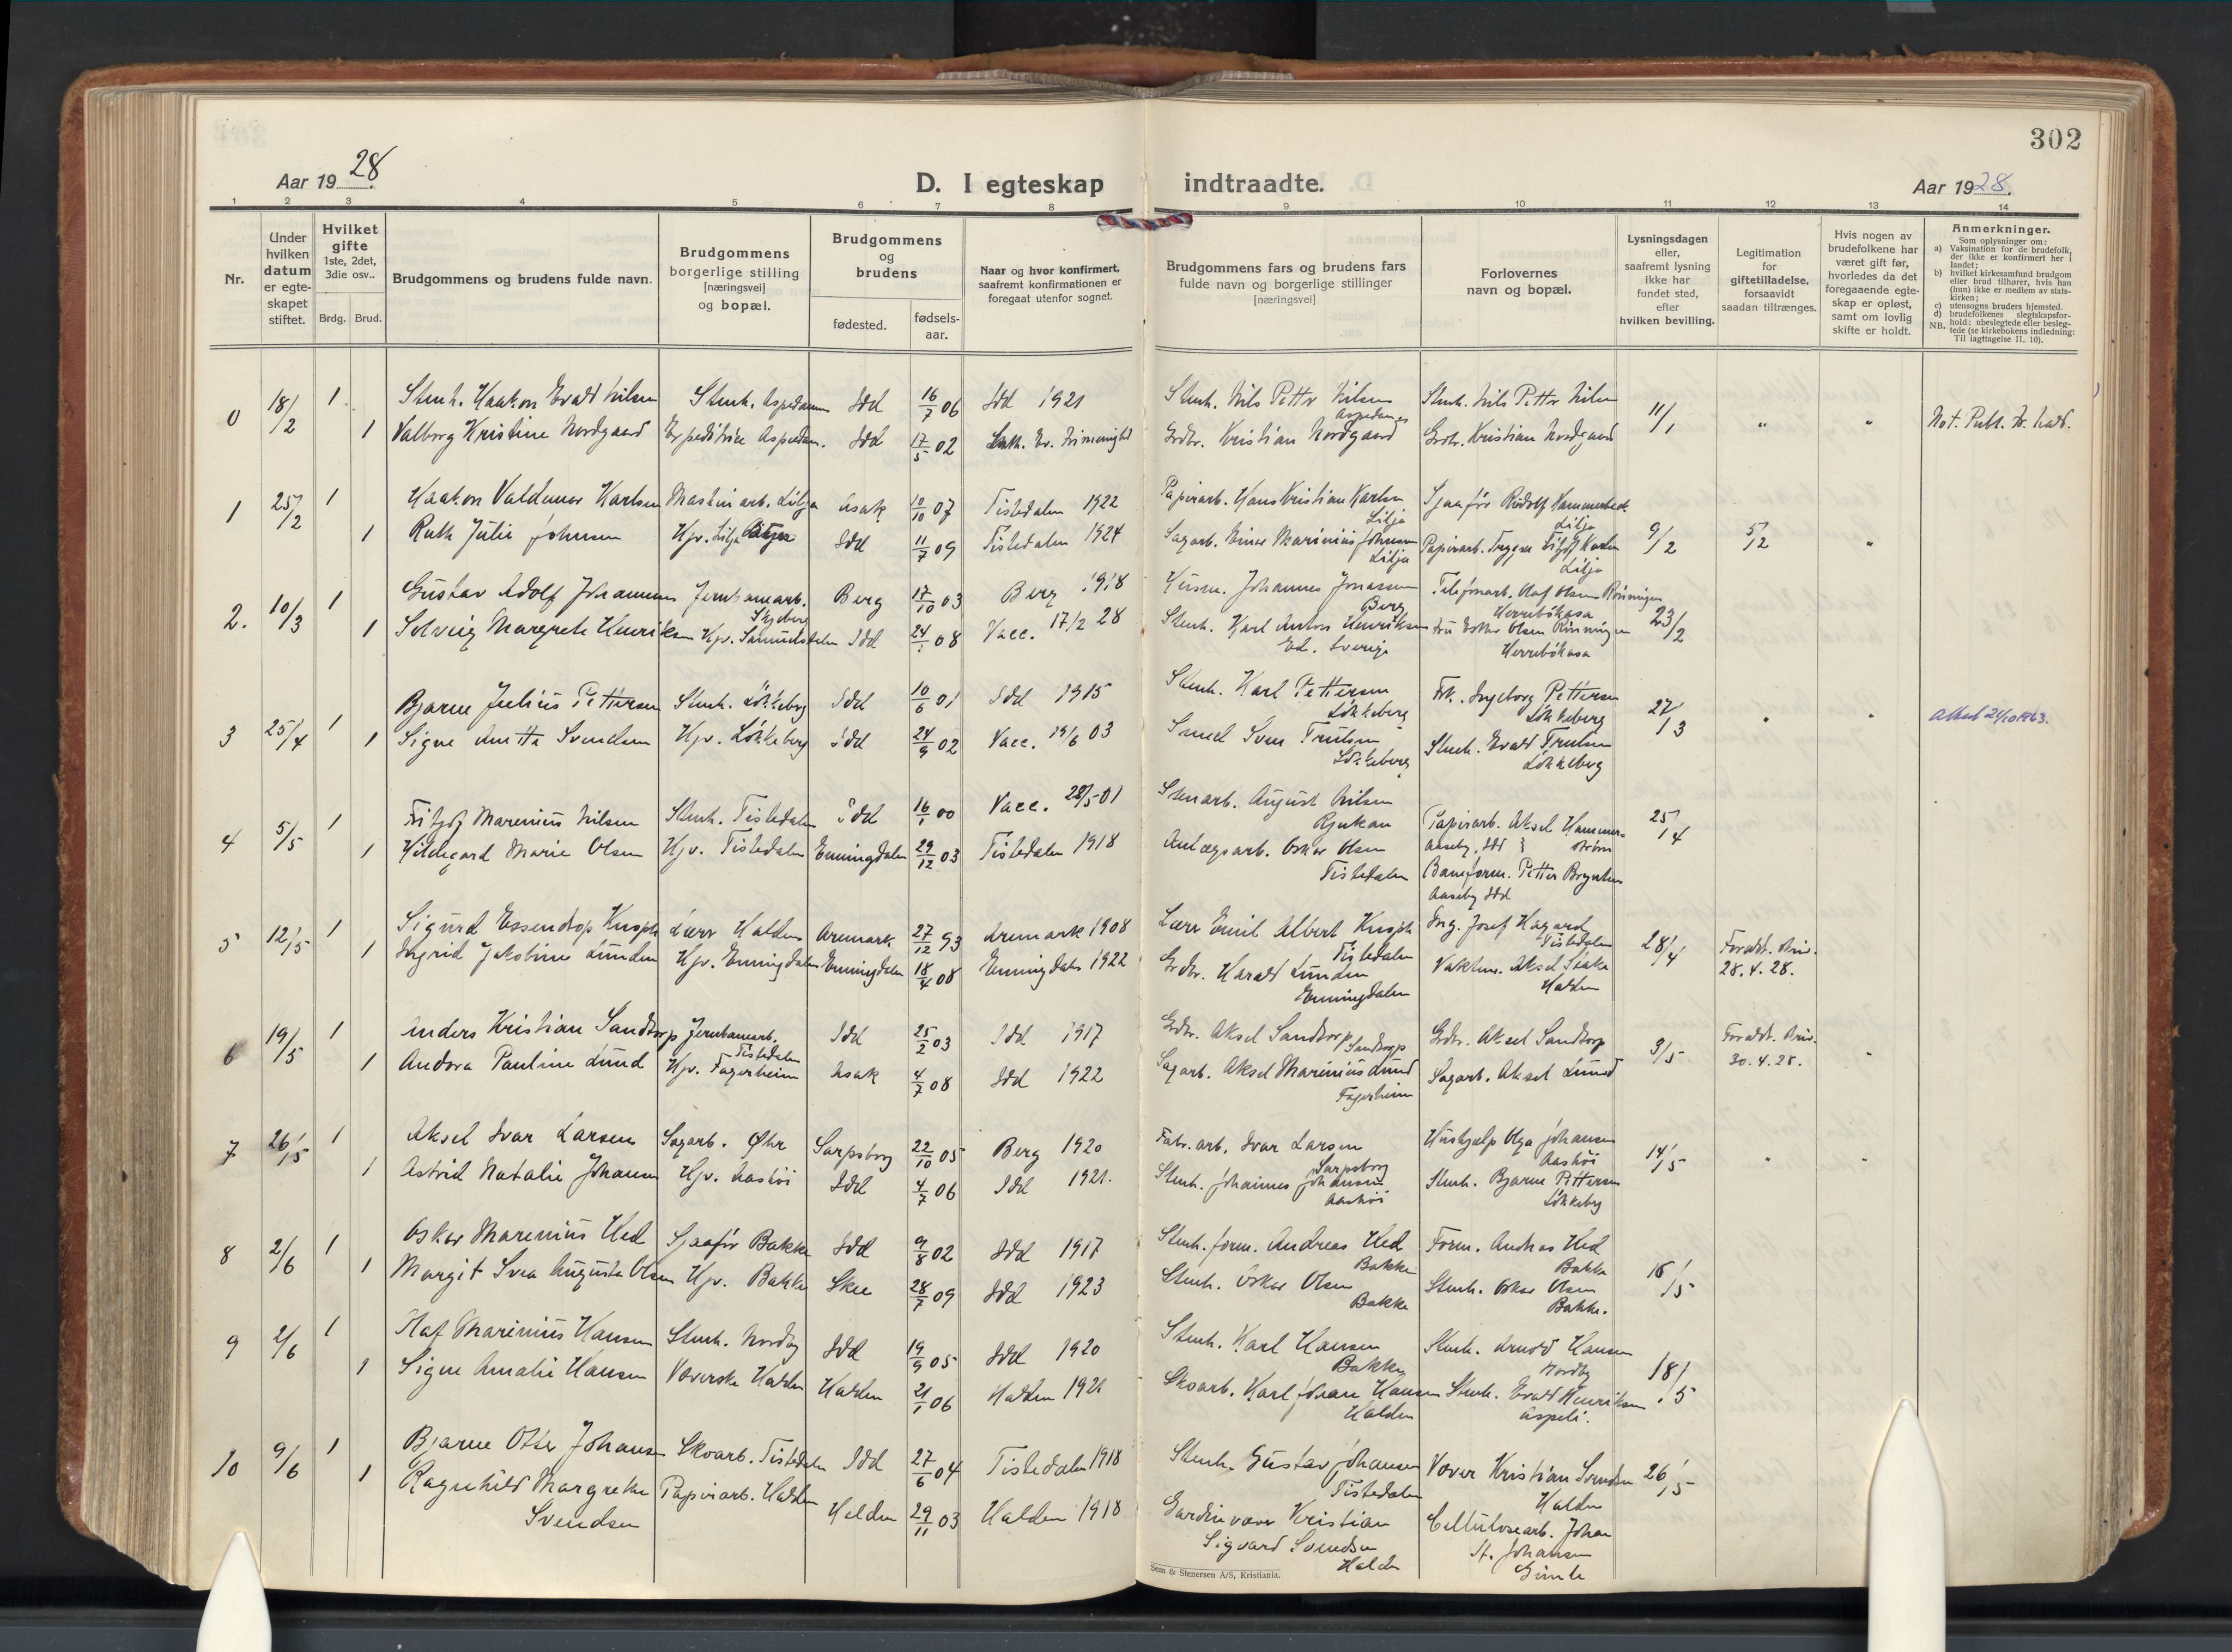 302
Aar 1928.
D. I egteskap indtraadte.
Aar 1928.
1 2 3 4 5 6 7 8 9 10 11 12 13 14
Nr.
Under hvilken datum er egteskapet stiftet.
Hvilket gifte 1ste, 2det, 3die osv..
Brdg. Brud.
Brudgommens og brudens fulde navn.
Brudgommens borgerlige stilling [næringsvei] og bopæl.
Brudgommens og brudens
fødested.
fødsels-aar.
Naar og hvor konfirmert, saafremt konfirmationen er foregaat utenfor sognet.
Brudgommens fars og brudens fars fulde navn og borgerlige stillinger [næringsvei]
Forlovernes navn og bopæl.
Lysningsdagen eller, saafremt lysning ikke har fundet sted, efter hvilken bevilling.
Legitimation for giftetilladelse, forsaavidt saadan tiltrænges.
Hvis nogen av brudefolkene har været gift før, hvorledes da det foregaaende egteskap er opløst, samt om lovlig skifte er holdt.
Anmerkninger.
Som oplysninger om:
a) Vaksination for de brudefolk, der ikke er konfirmert her i landet;
b) hvilket kirkesamfund brudgom eller brud tilhører, hvis han (hun) ikke er medlem av statskirken;
c) utensogns bruders hjemsted.
d) brudefolkenes slegtskapsforhold: ubeslegtede eller beslegtede (se kirkebokens indledning:
NB. Til iagttagelse II. 10).
0 18/2 1 Stenh. Haakon Evald Nilsen Stenh. Aspedammen Idd 16/7 06 Idd 1921 Stenh. Nils Petter Nilsen Aspedam Stenh. Nils Petter Nilsen 11/1 " " Not. Publ. Fr.hald.
1 Valborg Kristine Nordgaard Expeditrice Aspedam. Idd 17/5 02 Luth. Ev. Frimenighed Grdbr. Kristian Nordgaard Grdbr. Kristian Nordgaard
1 25/2 1 Haakon Valdemar Karlsen Maskinarb. Lilja Asak 10/10 07 Tistedalen 1922 Papirarb. Hans Kristian Karlsen Lilja Sjaafør Rudolf Hammerbeck Lilja 9/2 5/2 "
1 Ruth Julie Johnsen Hjv. Lilja Idd 11/7 09 Tistedalen 1924 Sagarb. Einar Marinius Johnsen Lilja Papirarb. Trygve Karlsen Lilja
2. 10/3 1 Gustav Adolf Johannesen Jernbanearb. Skjeberg Berg 17/10 03 Berg 1918 Husm. Johannes Jonassen Berg Telefonarb. Olaf Olsen Rönningen Herrebökasa 23/2
1 Solveig Margrete Henriksen Hjv. Samuelsdalen Idd 24/1 08 Vacc. 17/2 28 Stenh. Karl Anton Henriksen Ed. Sverige Fru Ester Olsen Rönningen Herrebökasa
3 25/4 1 Bjarne Julius Pettersen Stenh. Lökkeberg Idd 10/6 01 Idd 1915 Stenh. Karl Pettersen Lökkeberg Frk. Ingeborg Pettersen Lökkeberg 27/3 " "
1 Signe Anette Svendsen Hjv. Lökkeberg Idd 24/9 02 Vacc. 19/6 03 Smed Sven Trulsen Lökkeberg Stenh. Evald Trulsen Lökkeberg
4 5/5 1 Fritjof Marenius Nilsen Stenh. Tistedalen Idd 16/1 00 Vacc. 28/5 01 Stenarb. August Nilsen Rjukan Papirarb. Aksel Hammerstrøm Aaseby, Idd 25/4
1 Hildegard Marie Olsen Hjv. Tistedalen Enningdalen 29/12 03 Tistedalen 1918 Anlægsarb. Oskar Olsen Tistedalen Baneform. Petter Aaseby Idd
5 12/5 1 Sigurd Essendrop Knoph Lærer Halden Aremark 27/12 93 Aremark 1908 Lærer Emil Albert Knoph Tistedalen Ing. Josef Hagard Tistedalen 28/4 Foreldr. 28.4.28.
1 Ingrid Jakobine Lunden Hjv. Enningdalen Enningdalen 18/4 08 Enningdalen 1922 Grdbr. Harald Lunden Enningdalen Vaktm. Aksel Stake Halden
6 19/5 1 Anders Kristian Sandtorp Jernbanearb. Tistedalen Idd 25/2 03 Idd 1917 Grdbr. Aksel Sandtorp Sandtorp Grdbr. Aksel Sandtorp 3/5 Foreldr. 30.4.28. "
1 Andora Pauline Lund Hjv. Fagerheim Asak 4/7 08 Idd 1922 Sagarb. Aksel Marinius Lund Fagerheim Sagarb. Aksel Lund
7 26/5 1 Aksel Ivar Larsen Sagarb. Øhr Sarpsborg 22/10 05 Berg 1920 Fabr.arb. Ivar Larsen Sarpsborg Hushjælp Olga Johansen Aashöi 14/5 " "
1 Astrid Natalie Johansen Hjv. Aashöi Idd 4/7 06 Idd 1921. Stenh. Johannes Johansen Aashöi Stenh. Bjarne Pettersen Lökkeberg
8 2/6 1 Oskar Marenius Hed Sjaafør Bakke Idd 9/8 02 Idd 1917 Stenh. form. Andreas Hed Bakke Form. Andreas Hed Bakke 16/5
1 Margit Svea Augusta Olsen Hjv. Bakke Skee 28/7 09 Idd 1923 Stenh. Oskar Olsen Bakke Stenh. Oskar Olsen Bakke.
9 2/6 1 Olaf Marinius Hansen Stenh. Nordby Idd 19/9 05 Idd 1920 Stenh. Karl Hansen Bakke Stenh. Arnold Hansen Nordby 18/5
1 Signe Amalie Hansen Væverske Halden Halden 21/1 06 Halden 1921 Skoarb. Karl Johan Hansen Halden Stenh. Evald Henriksen Aspeli.
10 9/6 1 Bjarne Otto Johansen Skoarb. Tistedalen Idd 27/6 04 Tistedalen 1918 Stenh. Gustav Johansen Tistedalen Væver Kristian Svendsen Halden 26/5
1 Ragnhild Margrethe Svendsen Papirarb. Halden Halden 29/11 03 Halden 1918 Gardinvæver Kristian Sigvard Svendsen Halden Cellulosearb. Johan St. Johansen Gimle
Sem & Stenersen A/S, Kristiania.